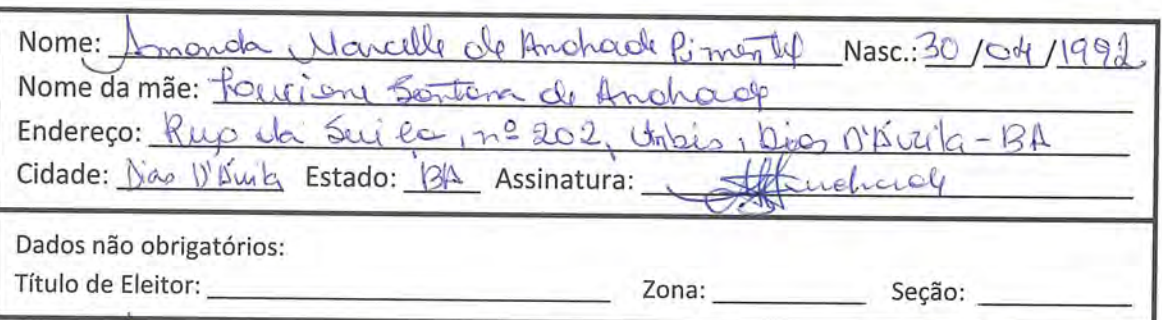 Nome: Amanda Marcelle de Andrade Pimentel Nasc.: 30 /04 /1992
Nome da mãe: Santana de Andrade
Endereço: Rua da Suiça, nº 202, Urbis, Dias D'Ávila - BA
Cidade: Dias D'Ávila Estado: BA Assinatura: Andrade
Dados não obrigatórios:
Título de Eleitor: Zona: Seção: